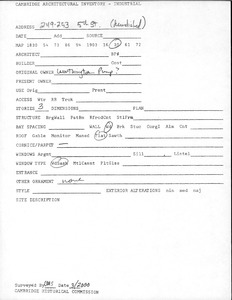 CAMBRIDGE ARCHITECTURAL INVENTORY - INDUSTRIAL
ADDRESS 249-253 5th St. (Demolished)
DATE Add SOURCE
MAP 1830 54 73 86 94 1903 16 30 61 72
ARCHITECT BP#
BUILDER Cost
ORIGINAL OWNER Pump?
PRESENT OWNER
USE Orig Prsnt
ACCESS Wtr RR Truk
STORIES 3 DIMENSIONS PLAN
STRUCTURE BrgWall PstBm RfrcdCnt StlFrm
BAY SPACING WALL Wd Brk Stuc Corgl Alm Cnt
ROOF Gable Monitor Mansd Flat Sawth
CORNICE/PARPET —
WINDOWS Argmt Sill Lintel
WINDOW TYPE WdSash MtlCsmnt FlxGlas
ENTRANCE
OTHER ORNAMENT none
STYLE EXTERIOR ALTERATIONS min mod maj
SITE DESCRIPTION
Surveyed By Date 3/2000
CAMBRIDGE HISTORICAL COMMISSION